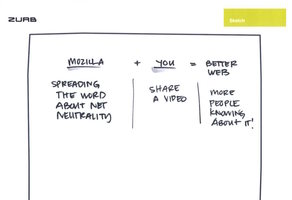 ZURB
Sketch
MOZILLA + YOU = BETTER
WEB
SPREADING
THE WORD
ABOUT NET
NEUTRALITY
SHARE
A VIDEO
MORE
PEOPLE
KNOWING
ABOUT IT!